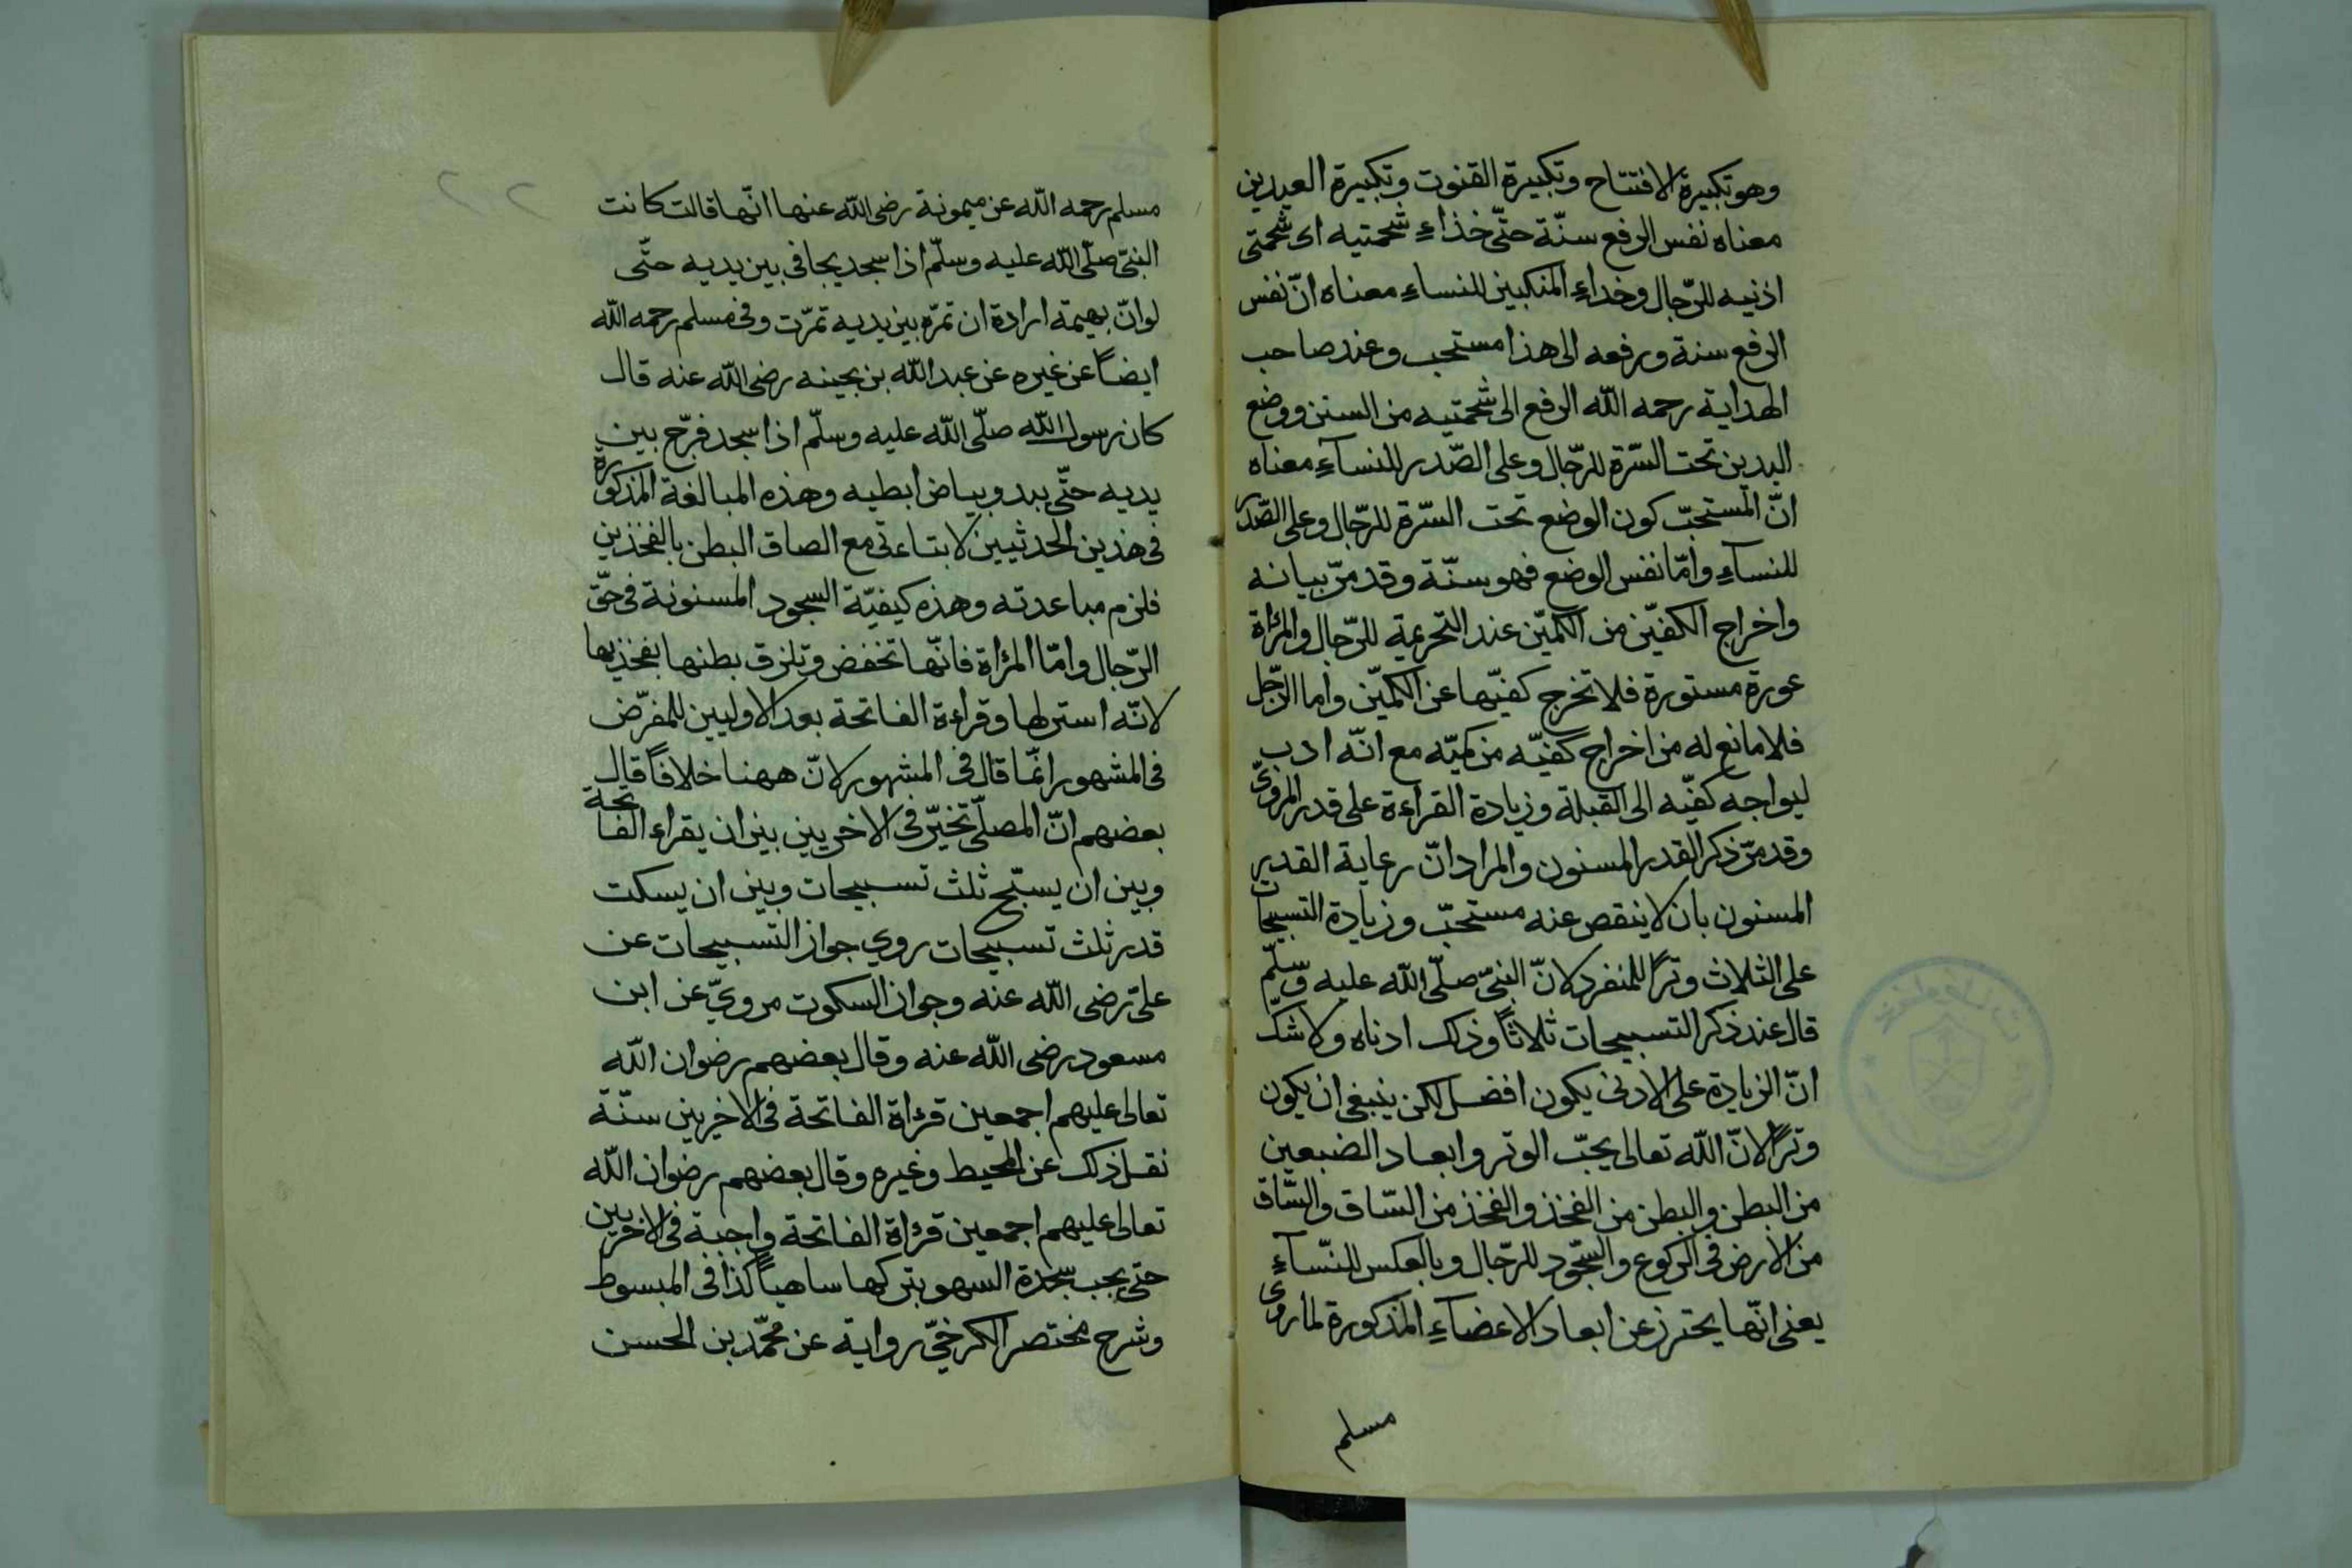 وهو تكبيرة الافتتاح وتكبيرة القنوت وتكبيرة العيدين
معناه نفس الرفع سنّة حتّى خذاءِ شحمتيه اى شحمتى
اذنيه للرّجال وخداءِ المنكبين للنساءِ معناه انّ نفس
الرفع سنة ورفعه الى هذا مستحب وعند صاحب
الهداية رحمه اللّه الرفع الى شحمتيه من السنن ووضع
اليدين تحت السّرة للرّجال وعلى الصّدر للنسآءِ معناه
انّ المستحبّ كون الوضع تحت السّرة للرّجال وعلى الصّدر
للنسآءِ وامّا نفس الوضع فهو سنّة وقد مرّ بيانه
واخراج الكفيّن من الكميّن عند التحريمة للرّجال والمرٔاة
عورة مستورة فلا تخرج كفيّها عن الكميّن واما الرّجل
فلا مانع له من اخراج كفيّه من كميّه مع انّه ادب
ليواجه كفيّه الى القبلة وزيادة القراءة على قدر المروىّ
وقد مرّ ذكر القدر المسنون والمراد انّ رعاية القدير
المسنون بان لا ينقص عنه مستحبّ وزيادة التسبيحات
على الثلاث وترًا للمنفرد لانّ النبىّ صلّى اللّه عليه وسّلّم
قال عند ذكر التسبيحات ثلاثاً وذلك ادناه ولا شكّ
انّ الزيادة على الادنى يكون افضل لكن ينبغى ان يكون
وترًا لانّ اللّه تعالى يحبّ الوتر وابعاد الضبعين
من البطن والبطن من الفخذ والفخذ من السّاق والسّاق
من الأرض فى الركوع والسّجود للرّجال وبالعكس للنّسآءِ
يعنى انّها يحترز عن ابعاد الاعضآءِ المذكورة لما روى
مسلم
٢٢
مسلم رحمه اللّه عن ميمونة رضى اللّه عنها انّها قالت كانت
النبىّ صلّى اللّه عليه وسلّم اذا سجد يجافى بين يديه حتّى
لو انّ بهيمة ارادة ان تمرّه بين يديه تمرّت وفى مسلم رحمه اللّه
ايضاً عن غيره عن عبد اللّه بن بحينه رضى اللّه عنه قال
كان رسول اللّه صلّى اللّه عليه وسلّم اذا سجد فرّج بين
يديه حتّى يبدو بياض ابطيه وهذه المبالغة المذكورة
فى هذين الحدثيين لا يتاءتى مع الصاق البطن بالفخذين
فلزم مباعدته وهذه كيفيّة السجود المسنونة فى حقّ
الرّجال وامّا المرٔاة فانّها تخفض وتلزق بطنها بفخذيها
لانّه استر لها وقراءة الفاتحة بعد الاوليين للمفرّض
فى المشهور انّما قال فى المشهور لانّ ههنا خلافاً قال
بعضهم انّ المصلّى تخيّر فى الاخريين بين ان يقراء الفاتحة
وبين ان يسبّح ثلث تسبيحات وبين ان يسكت
قدر ثلث تسبيحات روي جواز التسبيحات عن
علىّ رضى اللّه عنه وجواز السكوت مرويّ عن ابن
مسعود رضى اللّه عنه وقال بعضهم رضوان اللّه
تعالى عليهم اجمعين قرٔاة الفاتحة فى الاخريين سنّة
نقل ذلك عن المحيط وغيره وقال بعضهم رضوان اللّه
تعالى عليهم اجمعين قرٔاة الفاتحة واجبة فى الاخريين
حتى يجب سجدة السهو بتركها ساهياً كذا فى المبسوط
وشرح مختصر الكرخىّ رواية عن محمّد بن الحسن